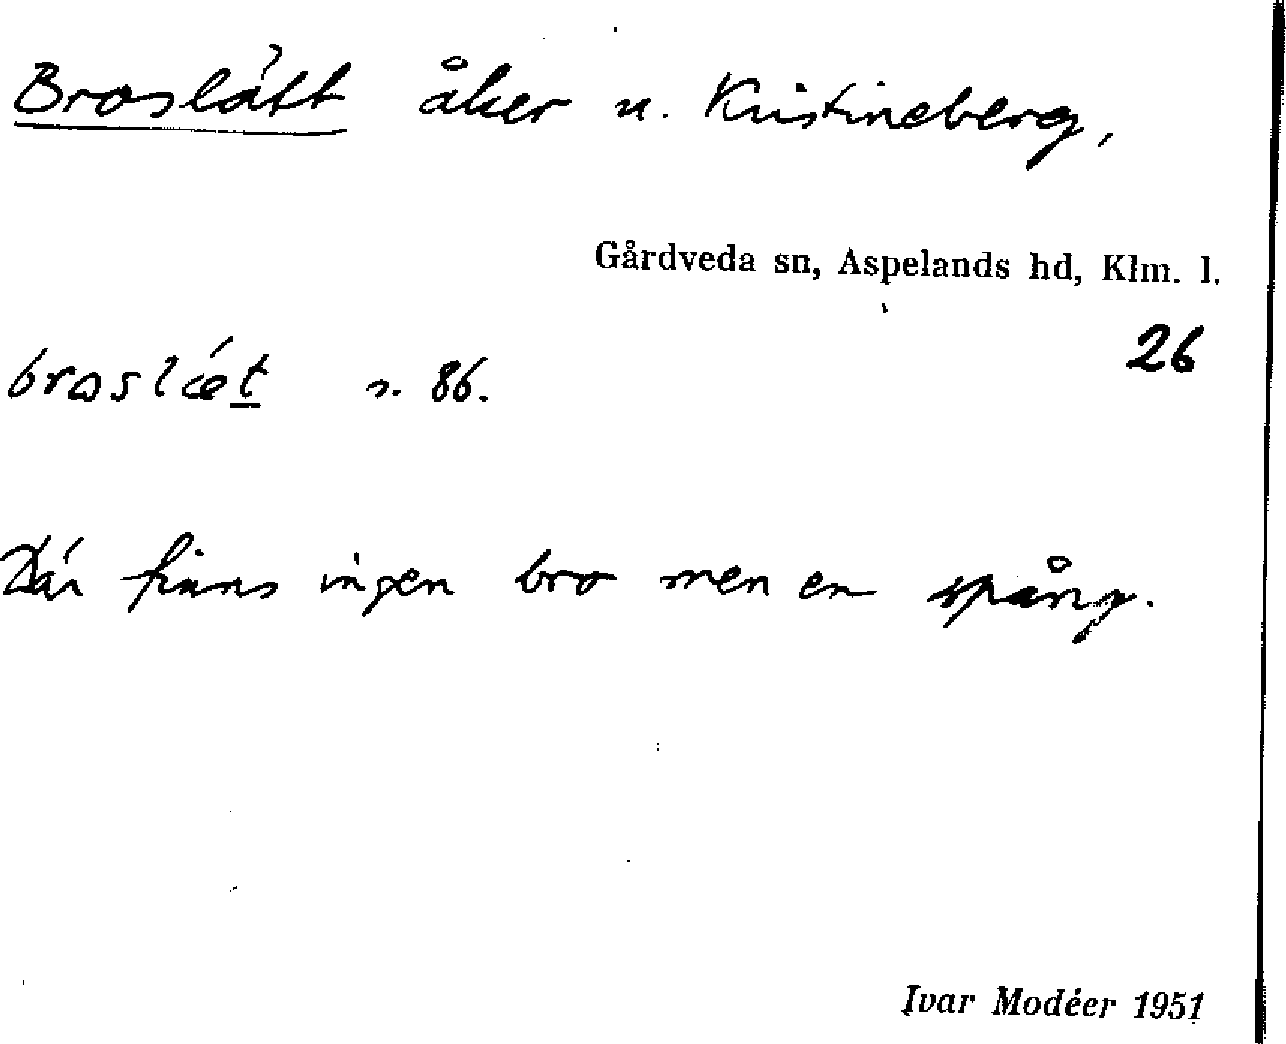 Broslätt åker u. Kristineberg,
Gårdveda sn, Aspelands hd, Klm. l.
26
broslæt s. 86.
Där finns ingen bro men en spång.
Ivar Modéer 1951